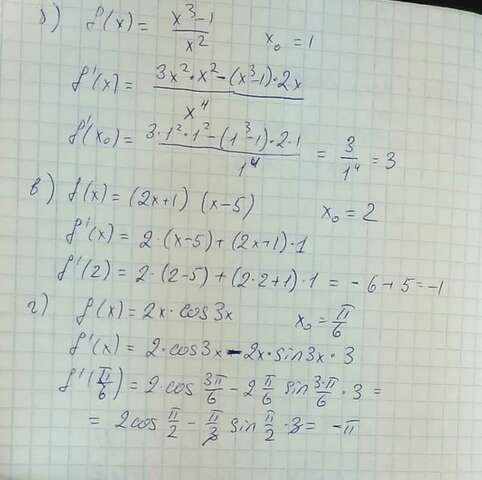 б) f(x) = (x³-1)/x² x₀ = 1
f'(x) = (3x²·x² - (x³-1)·2x)/x⁴
f'(x₀) = (3·1²·1² - (1³-1)·2·1)/1⁴ = 3/1⁴ = 3
в) f(x) = (2x+1) (x-5) x₀ = 2
f'(x) = 2·(x-5) + (2x+1)·1
f'(2) = 2·(2-5) + (2·2+1)·1 = -6+5 = -1
г) f(x) = 2x·cos3x x₀ = π/6
f'(x) = 2·cos3x - 2x·sin3x·3
f'(π/6) = 2·cos 3π/6 - 2 π/6 sin 3·π/6 · 3 =
= 2cos π/2 - π/3 sin π/2 · 3 = -π